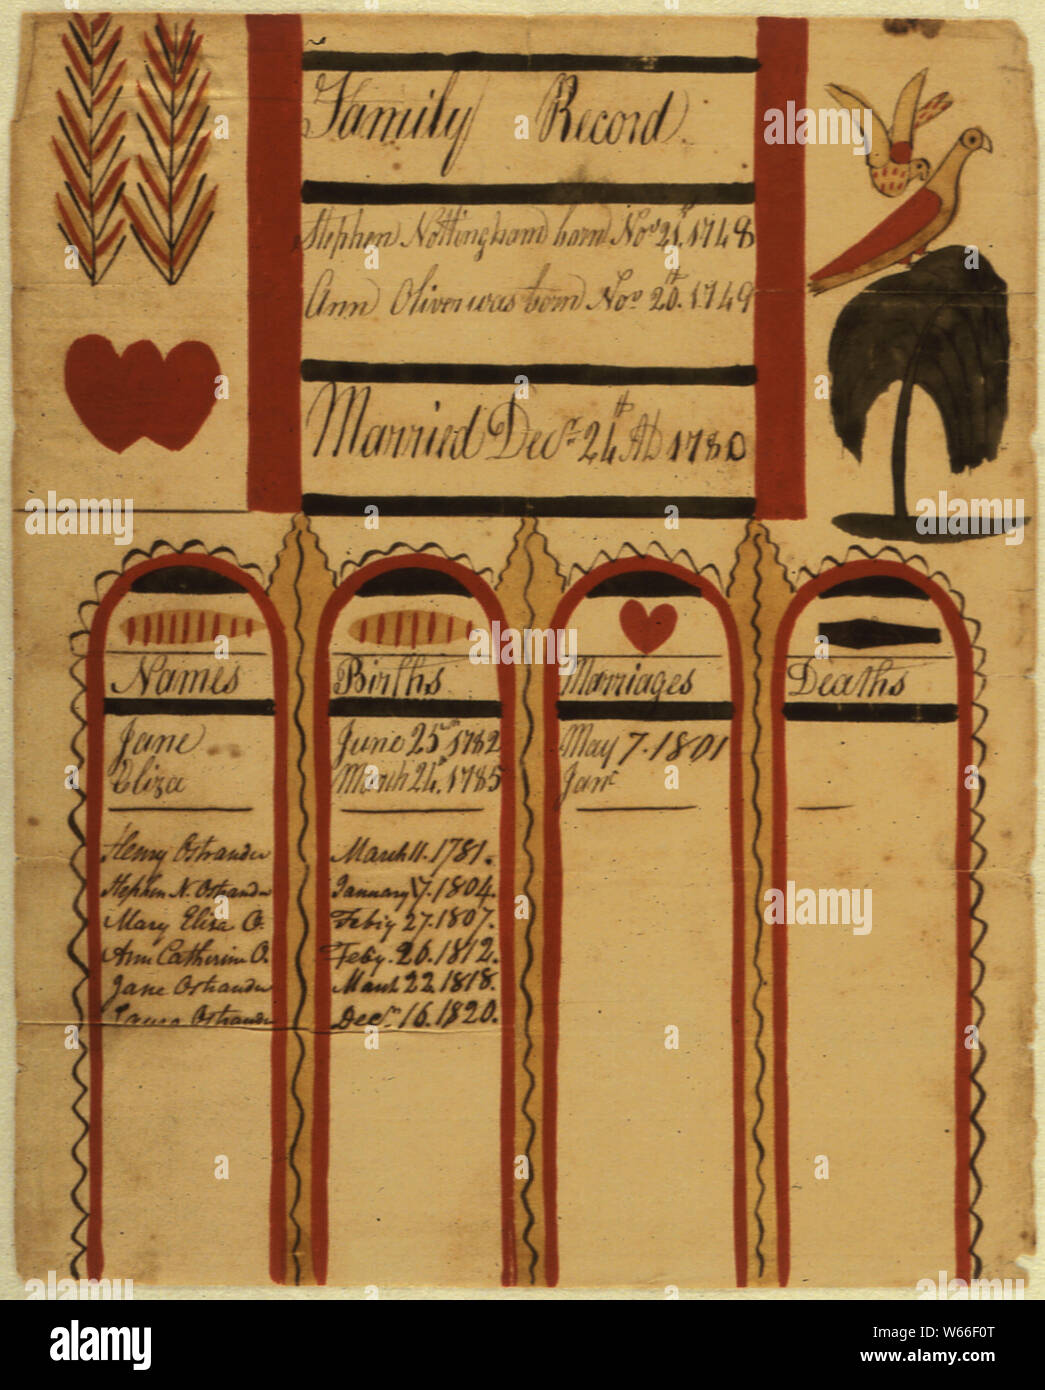 Family Record
Stephen Nottingham born Nov 21st 1748
Ann Oliver was born Nov 20th. 1749
Married Decr. 24th AD 1780
Names Births Marriages Deaths
Jane June 25th 1782 May 7. 1801
Eliza March 24th. 1785 Janr
Henry Ostrander March 11. 1781.
Stephen N. Ostrander January 7. 1804.
Mary Eliza O. Feb'y 27. 1807.
Ann Catherine O. Feby. 20. 1812.
Jane Ostrander March 22. 1818.
Laura Ostrander Decr. 16. 1820.
alamy
Image ID: W66F0T
www.alamy.com